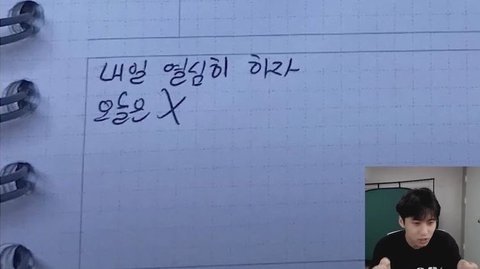 내일 열심히 하자
오늘은 X